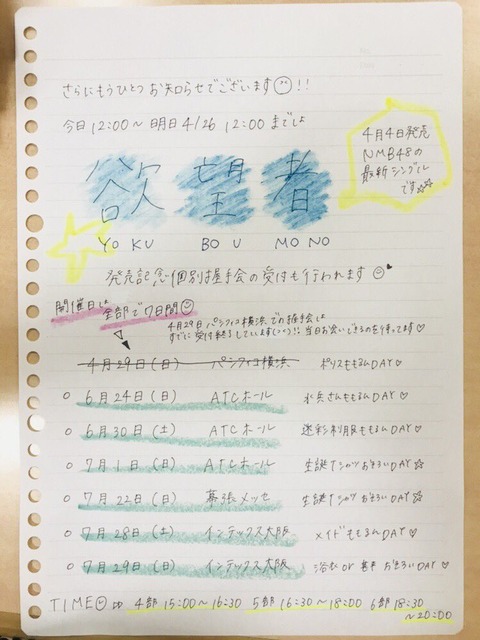 さらにもうひとつお知らせでございます!!
今日12:00〜明日4/26 12:00までしよ
4月4日発売
NMB48の
最新シングル
です☆☆
欲望者
YOKU BOU MONO
発売記念個別握手会の受付も行われます
開催日は
全部で7日間
4月29日パシフィコ横浜での握手会は
すでに受付終了しています(つ;)!!当日お会いできるのを待ってます♡
4月29日(日) パシフィコ横浜 ポリスももるんDAY♡
○ 6月24日(日) ATCホール 水兵さんももるんDAY♡
○ 6月30日(土) ATCホール 迷彩制服ももるんDAY♡
○ 7月1日(日) ATCホール 生誕TシャツおそろいDAY☆
○ 7月22日(日) 幕張メッセ 生誕Tシャツおそろい DAY☆
○ 7月28日(土) インテックス大阪 メイドももるんDAY♡
○ 7月29日(日) インテックス大阪 浴衣or甚平おそろいDAY♡
TIME ⇨ 4部 15:00〜16:30 5部 16:30〜18:00 6部 18:30
〜20:00